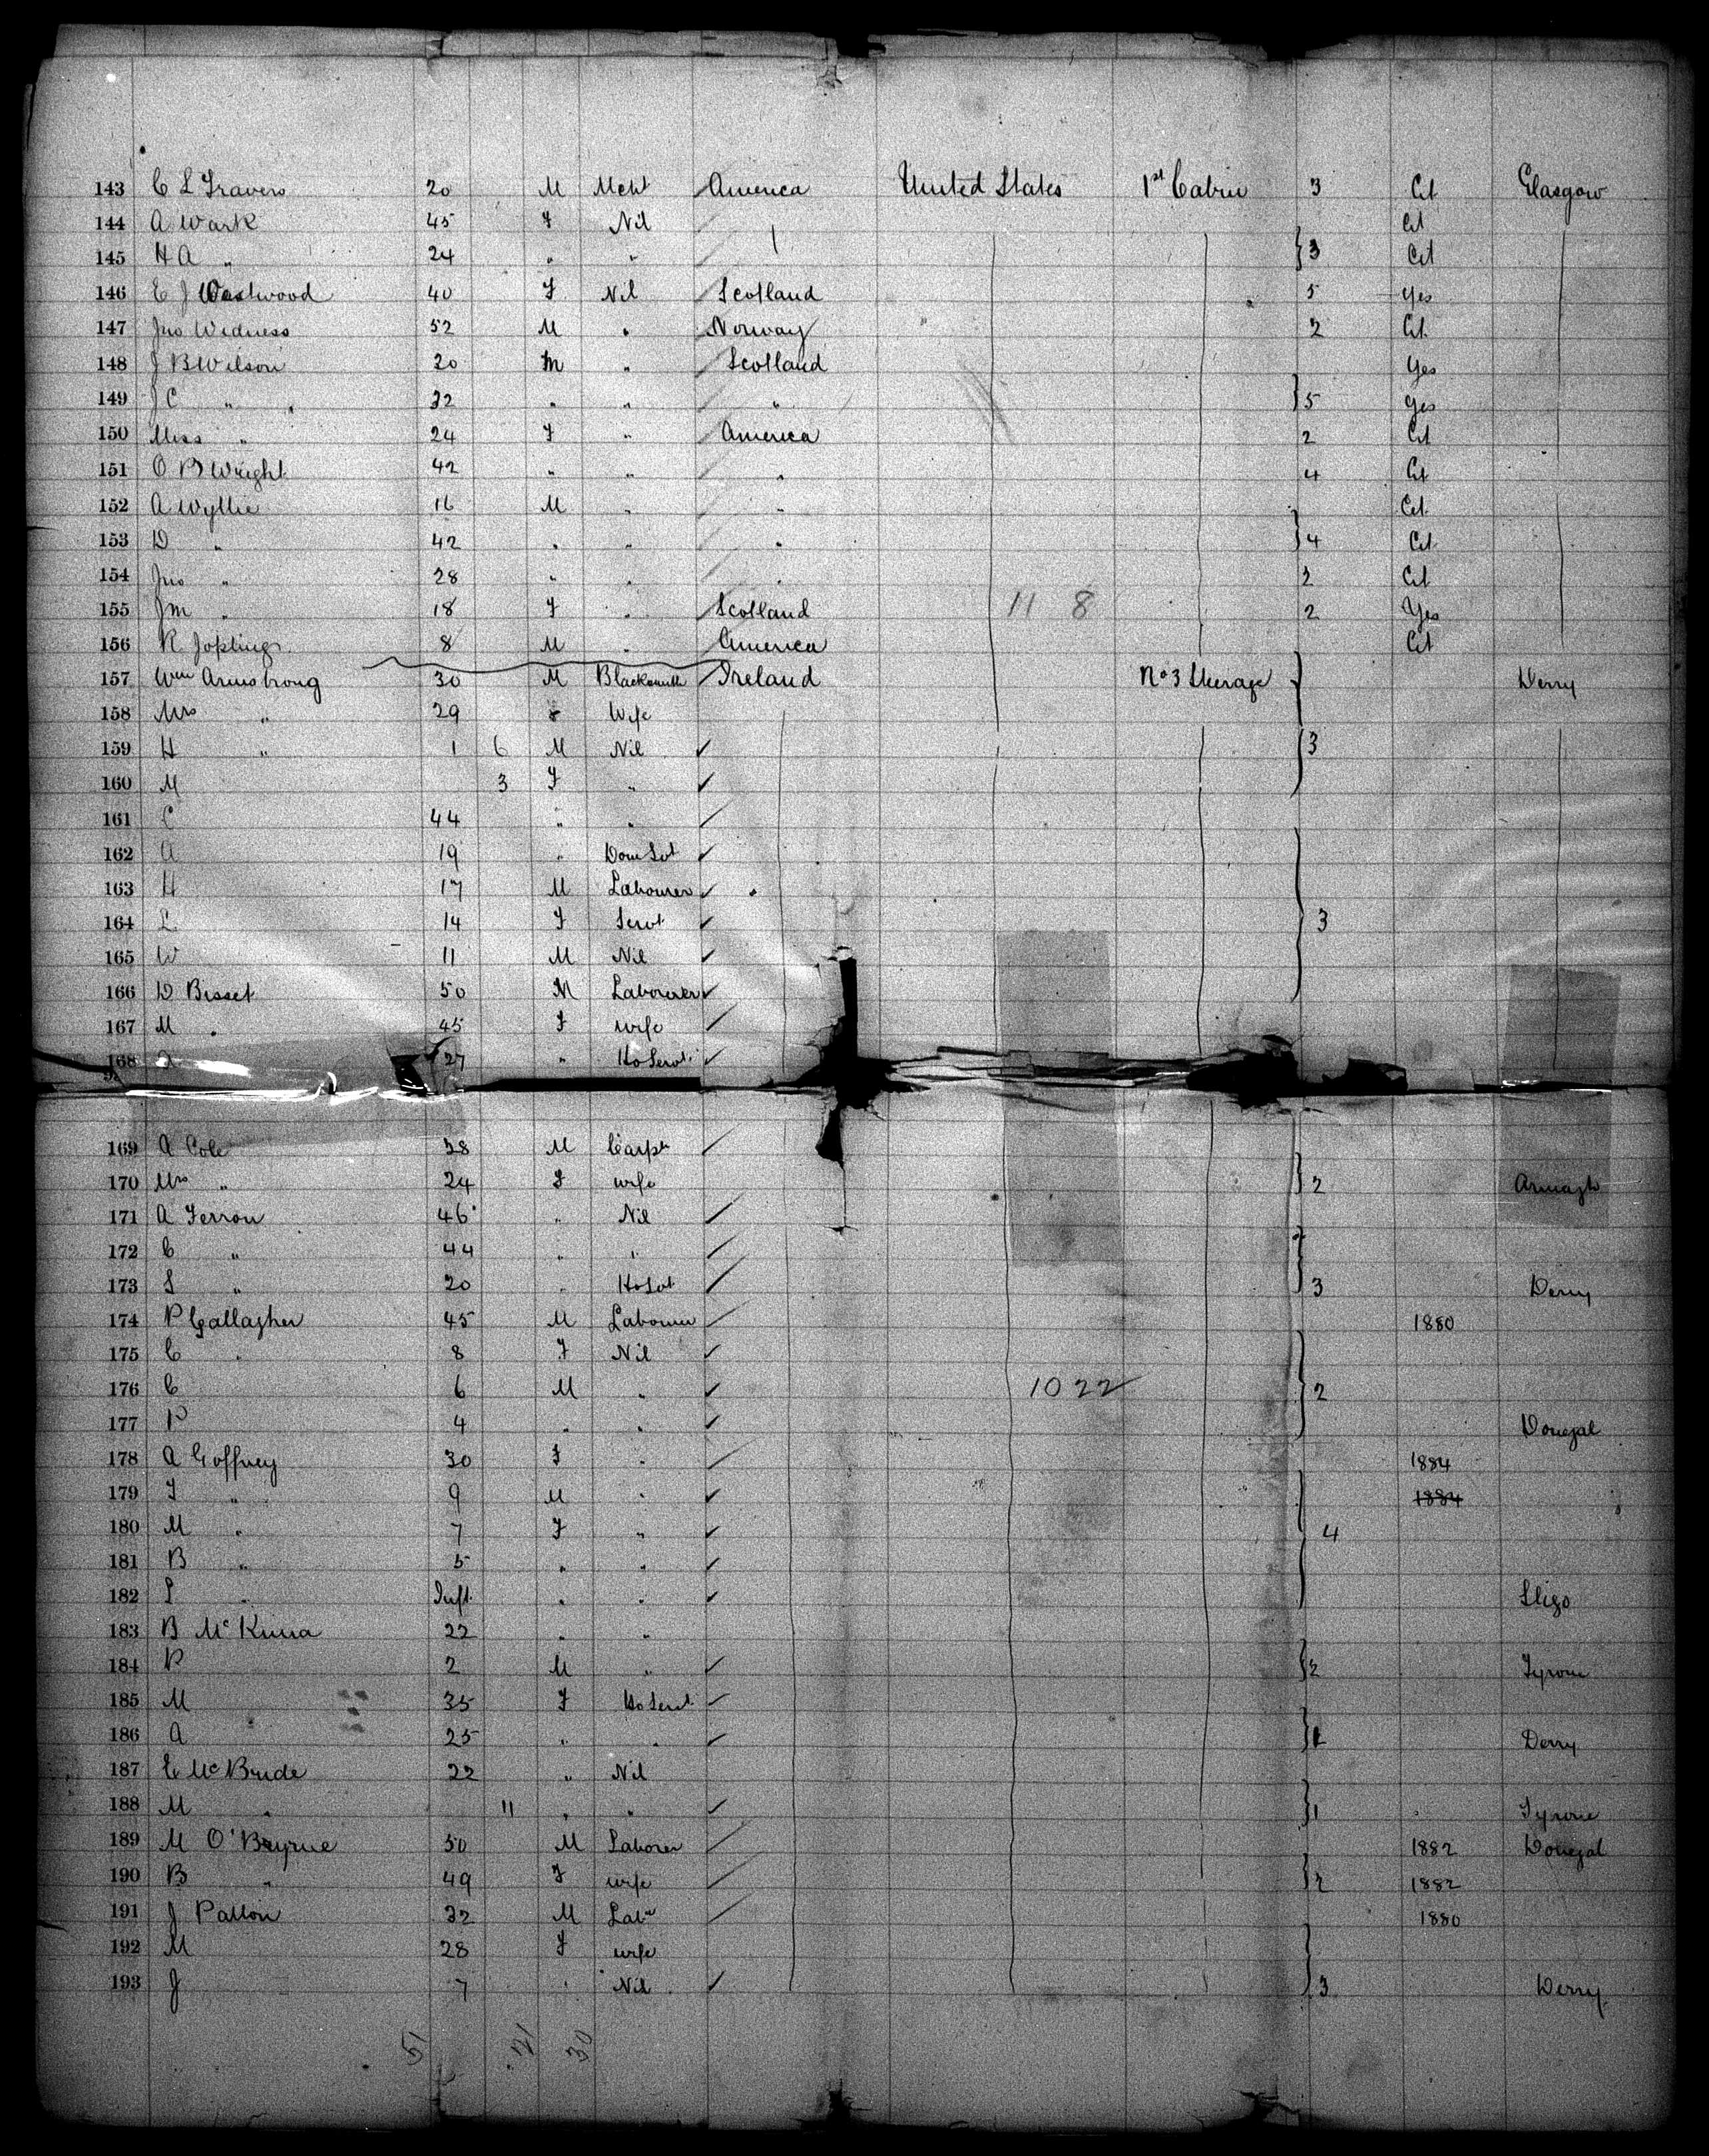 143 C L Travers 20 M Mcht America United States 1st Cabin 3 Cit Glasgow
144 A Wark 45 F Nil Cit
145 H A " 24 " " }3 Cit
146 E J Westwood 40 F Nil Scotland 5 Yes
147 Jno Widness 52 M " Norway 2 Cit
148 J B Wilson 20 M " Scotland Yes
149 J C " 32 " " " }5 Yes
150 Miss " 24 F " America 2 Cit
151 O B Wright 42 " " " 4 Cit
152 A Wyllie 16 M " " Cit
153 D " 42 " " " }4 Cit
154 Jno " 28 " " " 2 Cit
155 Jm " 18 F " Scotland 11 8 2 Yes
156 R Jopling 8 M " America Cit
157 Wm Armstrong 30 M Blacksmith Ireland No 3 Steerage Derry
158 Mrs " 29 F Wife
159 H " 1 6 M Nil }3
160 M 3 F "
161 C 44 " "
162 A 19 " Dom Svt
163 H 17 M Labourer
164 L 14 F Servt 3
165 W 11 M Nil
166 D Bisset 50 M Labourer
167 M " 45 F wife
168 A 27 " Ho Servt
169 A Cole 38 M Carptr
170 Mrs " 24 F wife }2 Armagh
171 A Ferron 46 " Nil
172 C " 44 " "
173 S " 20 " Ho Svt 3 Derry
174 P Gallagher 45 M Labourer 1880
175 C " 8 F Nil
176 C 6 M " 10 22 2
177 P 4 " " Donegal
178 A Goffney 30 F " 1884
179 T " 9 M " 1884
180 M " 7 F " 4
181 B " 5 " "
182 L " Inft. " " Sligo
183 B McKinna 22 " "
184 P 2 M " }2 Tyrone
185 M 35 F Ho Servt
186 A 25 " " }1 Derry
187 E McBride 22 " Nil
188 M " 11 " " }1 Tyrone
189 M O'Beyrne 50 M Laborer 1882 Donegal
190 B " 49 F wife }2 1882
191 J Patton 32 M Labr 1880
192 M 28 F wife
193 J 7 " Nil 3 Derry
51 21 30